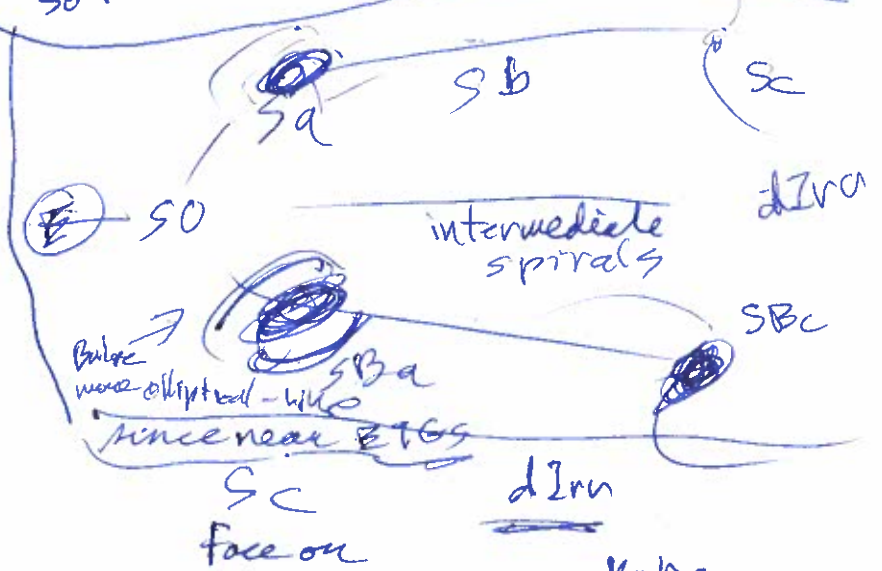 Sa
Sb
Sc
E
SO
dIrr
intermediate
spirals
SBc
Bulge
SBa
more elliptical-like
since near ETGs
Sc
dIrr
Face on